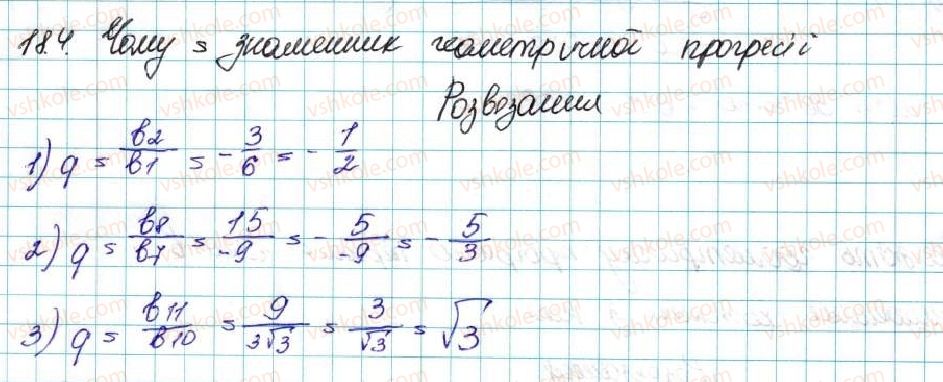 18.4. Чому = знаменник геометричної прогресії
Розвозання
1) q = b2/b1 = -3/6 = -1/2
2) q = b8/b7 = 15/-9 = -5/-9 = -5/3
3) q = b11/b10 = 9/3√3 = 3/√3 = √3